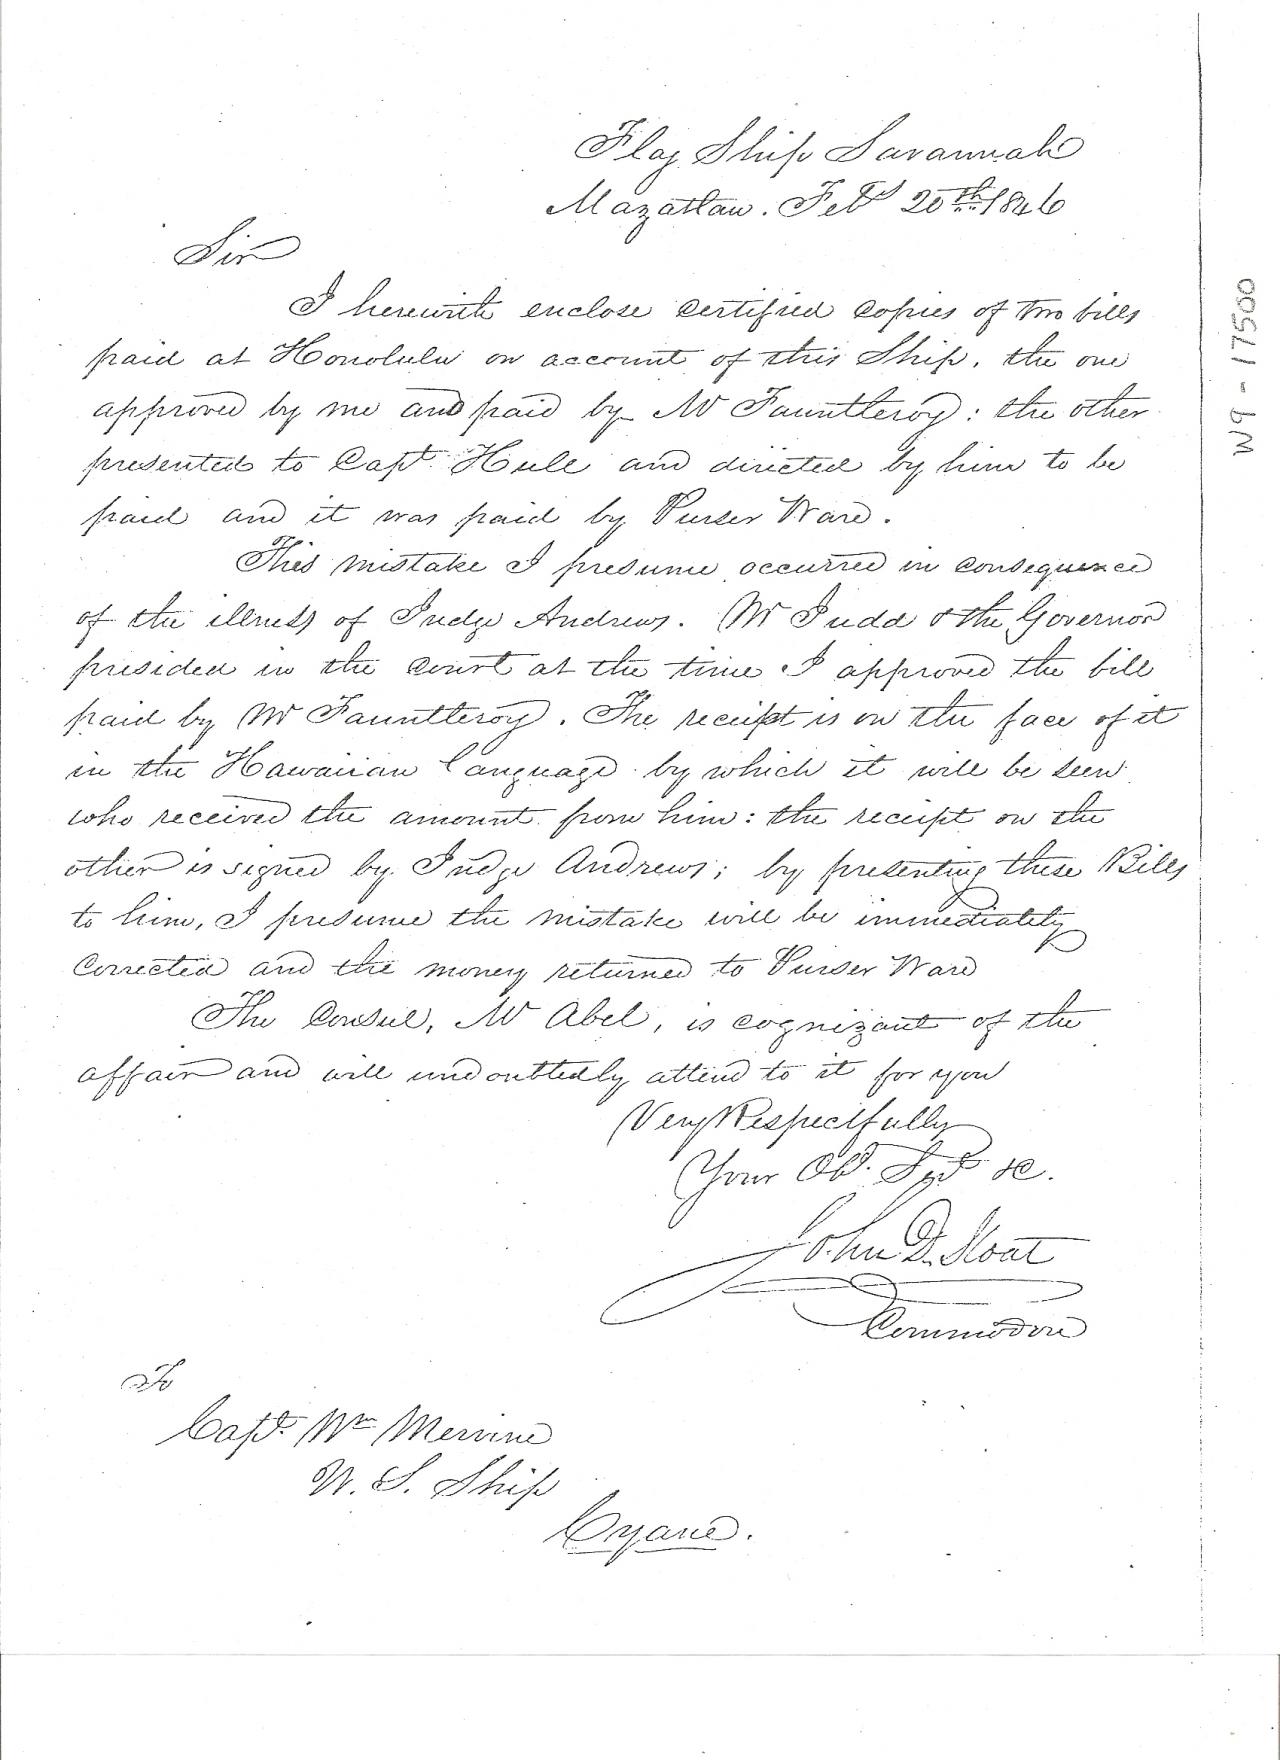 Flag Ship Savannah
Mazatlan. Feby 20th 1846
Sir
I herewith enclose certified copies of two bills
paid at Honolulu on account of this Ship, the one
approved by me and paid by Mr Fauntleroy: the other
presented to Capt. Hull and directed by him to be
paid and it was paid by Purser Ware.
This mistake I presume occurred in consequence
of the illness of Judge Andrews. Mr Judd & the Governor
presided in the court at the time I approved the bill
paid by Mr Fauntleroy. The receipt is on the face of it
in the Hawaiian language by which it will be seen
who received the amount from him: the receipt on the
other is signed by Judge Andrews; by presenting these Bills
to him, I presume the mistake will be immediately
corrected and the money returned to Purser Ware
The Consul, Mr Abel, is cognizant of the
affair and will undoubtedly attend to it for you
Very Respectfully
Your Obt. Svt &c.
John D. Sloat
Commodore
To
Capt. Wm Mervine
U. S. Ship
Cyane.
W9-17500